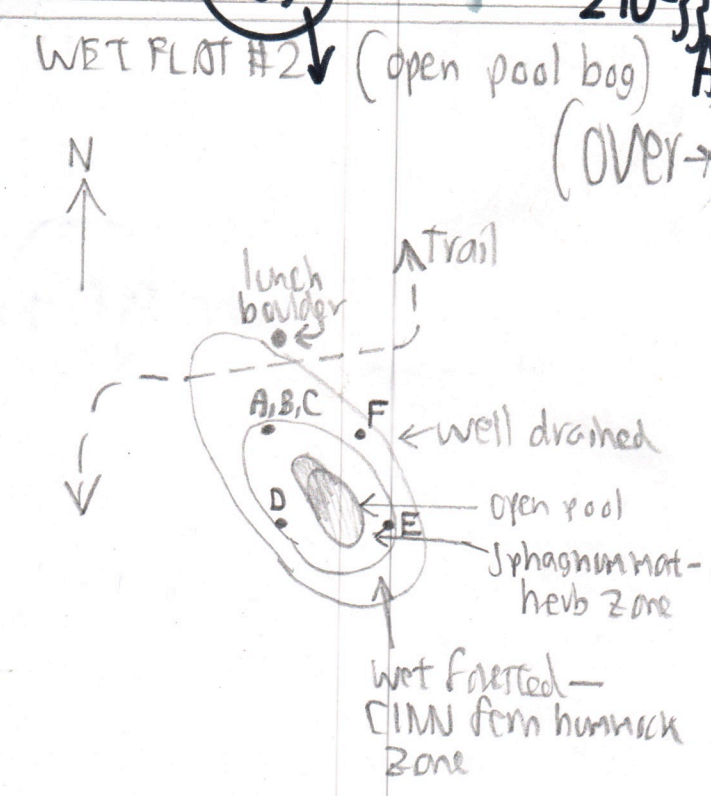 WET FLAT #2 (open pool bog)
(over→
N
Trail
lunch
boulder
A,B,C
F
well drained
D
open pool
E
Sphagnum mat-
herb zone
wet forested—
CINN fern hummock
zone